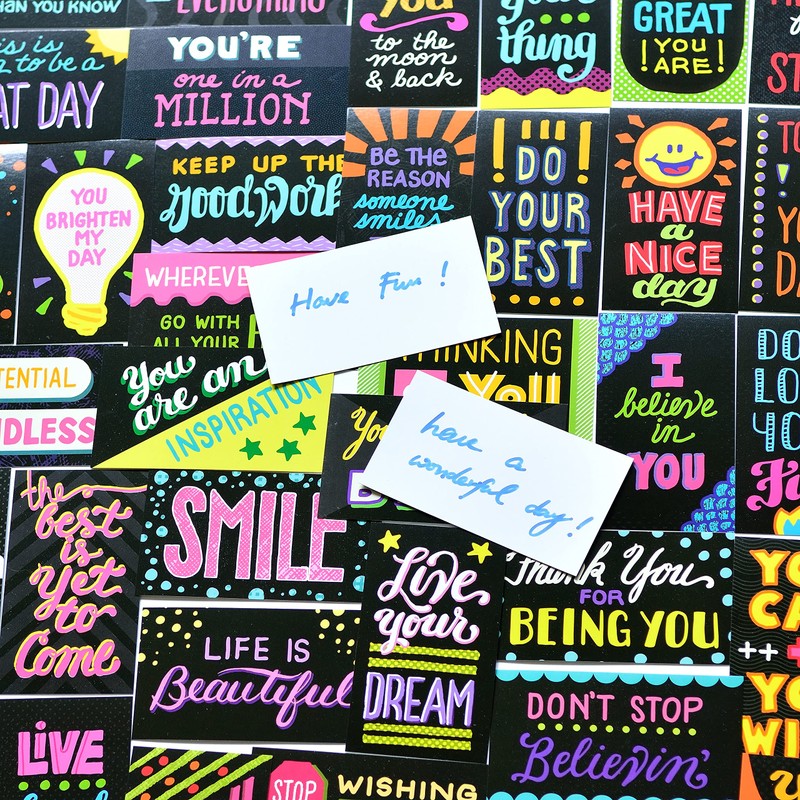 THAN YOU KNOW
EVERYTHING
This is
to be a
AT DAY
YOU'RE
one in a
MILLION
you
to the
moon
& back
your
thing
GREAT
YOU
ARE!
YOU
BRIGHTEN
MY
DAY
KEEP UP THE
good work
BE THE
REASON
someone
smiles
!DO!
YOUR
BEST
HAVE
a
NICE
day
WHEREVE
GO WITH
ALL YOUR
Have Fun !
TENTIAL
NDLESS
You
are an
INSPIRATION
THINKING
You
have a
wonderful day!
I
believe
in
YOU
DO
LO
YO
the
best
is
yet
to
Come
SMILE
Live
your
DREAM
Thank You
FOR
BEING YOU
YO
CA
++
YO
WI
LIFE IS
Beautiful
DON'T STOP
Believin'
LiVE
STOP
WISHING